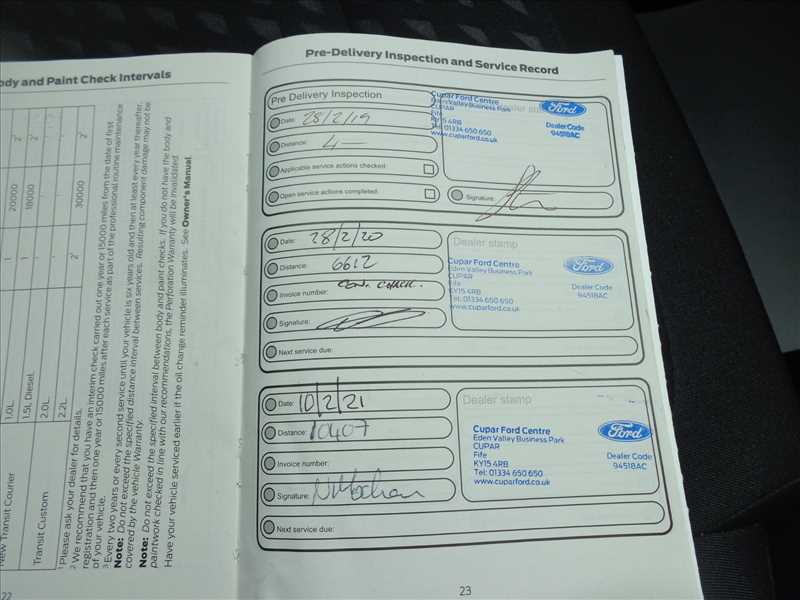 ody and Paint Check Intervals
20000
1
2¹
18000
1
2¹
30000
2¹
2¹
New Transit Courier
1.0L
1.5L Diesel
Transit Custom
2.0L
2.2L
¹ Please ask your dealer for details.
² We recommend that you have an interim check carried out one year or 15000 miles from the date of first
registration and then one year or 15000 miles after each service as part of the professional routine maintenance
of your vehicle.
³ Every two years or every second service until your vehicle is six years old and then at least every year thereafter.
Note: Do not exceed the specified distance interval between services. Resulting component damage may not be
covered by the vehicle Warranty.
Note: Do not exceed the specified interval between body and paint checks. If you do not have the body and
paintwork checked in line with our recommendations, the Perforation Warranty will be invalidated
Have your vehicle serviced earlier if the oil change reminder illuminates. See Owner's Manual.
22
Pre-Delivery Inspection and Service Record
Pre Delivery Inspection
Date: 28/2/19
Distance: 4
Applicable service actions checked:
Open service actions completed:
Dealer stamp
Cupar Ford Centre
Eden Valley Business Park
CUPAR
Fife
KY15 4RB
Tel: 01334 650 650
www.cuparford.co.uk
Ford
Dealer Code
94518AC
Signature:
Date: 28/2/20
Distance: 6612
Invoice number:
Signature:
Next service due:
Dealer stamp
Cupar Ford Centre
Eden Valley Business Park
CUPAR
Fife
KY15 4RB
Tel: 01334 650 650
www.cuparford.co.uk
Ford
Dealer Code
94518AC
Date: 10/2/21
Distance: 10407
Invoice number:
Signature:
Next service due:
Dealer stamp
Cupar Ford Centre
Eden Valley Business Park
CUPAR
Fife
KY15 4RB
Tel: 01334 650 650
www.cuparford.co.uk
Ford
Dealer Code
94518AC
23